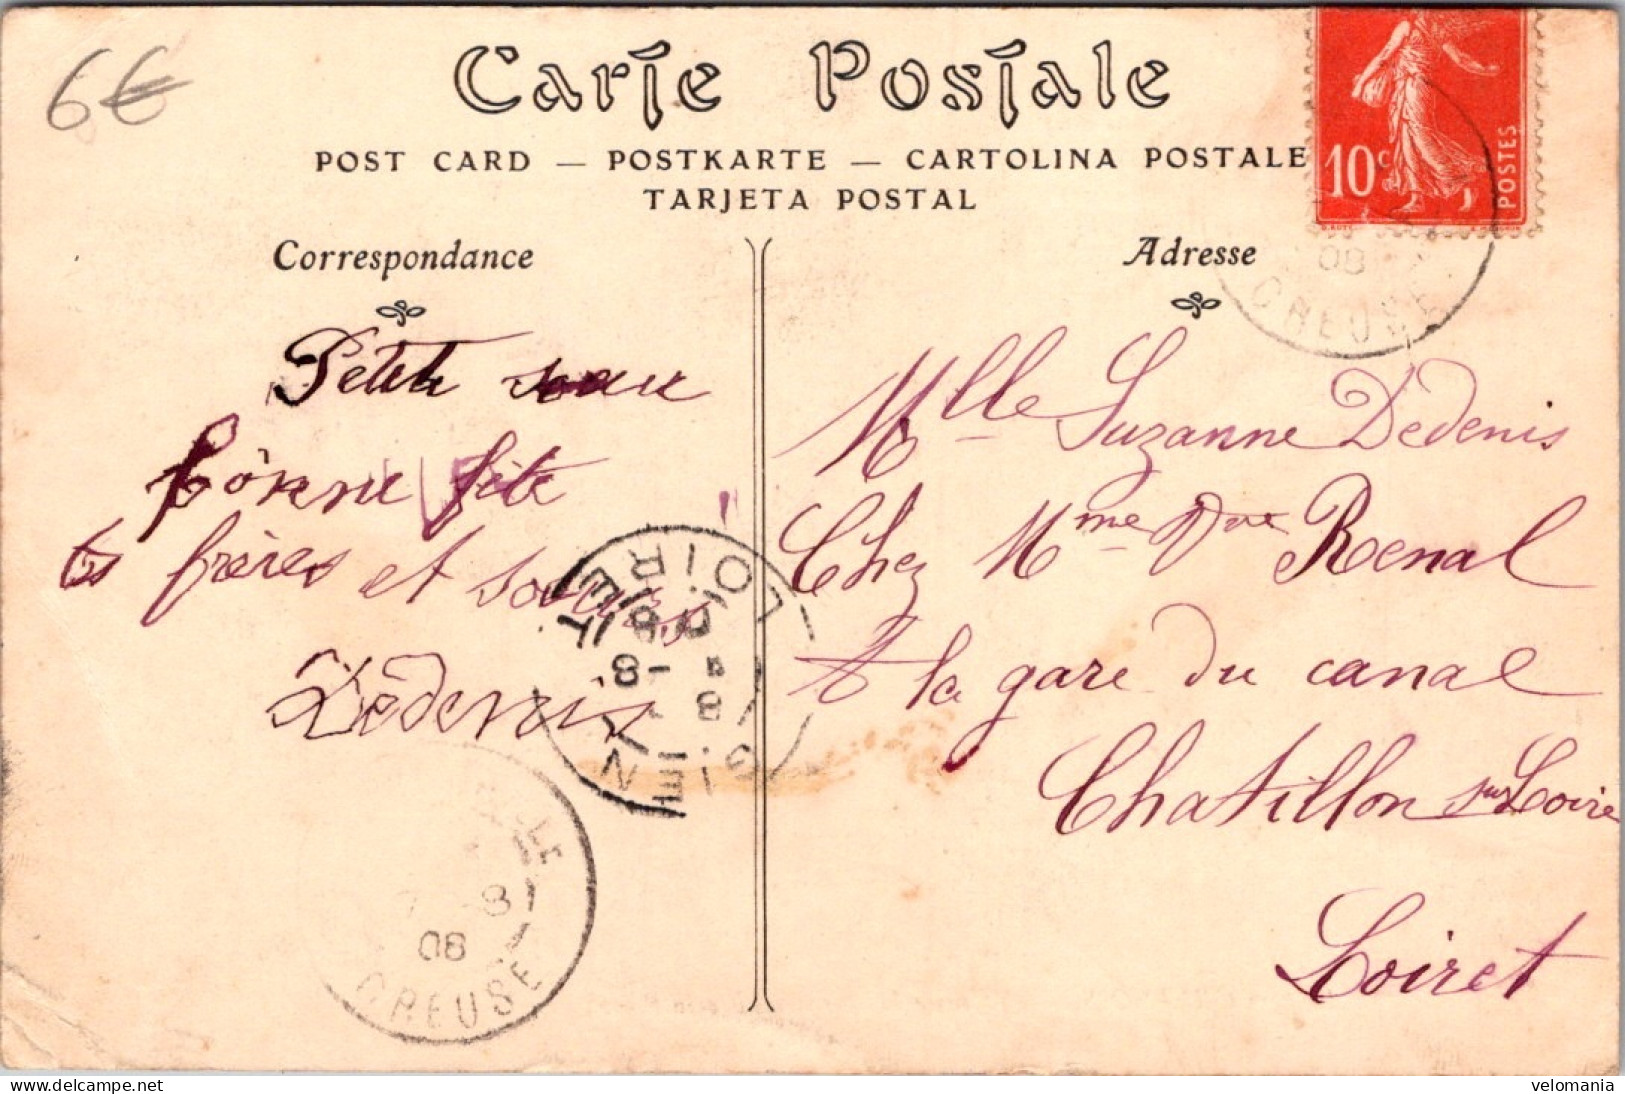 6€
Carte Postale
POST CARD — POSTKARTE — CARTOLINA POSTALE
TARJETA POSTAL
10c
POSTES
Correspondance
Adresse
08
CREUSE
Petite sœur
bonne fête
tes frères et soeurs
Dedenis
Mlle Suzanne Dedenis
Chez Mme Vve Renal
A la gare du canal
Chatillon sur Loire
Loiret
GIEN
LOIRET
18
8
08
CREUSE
-8
08
velomania
www.delcampe.net